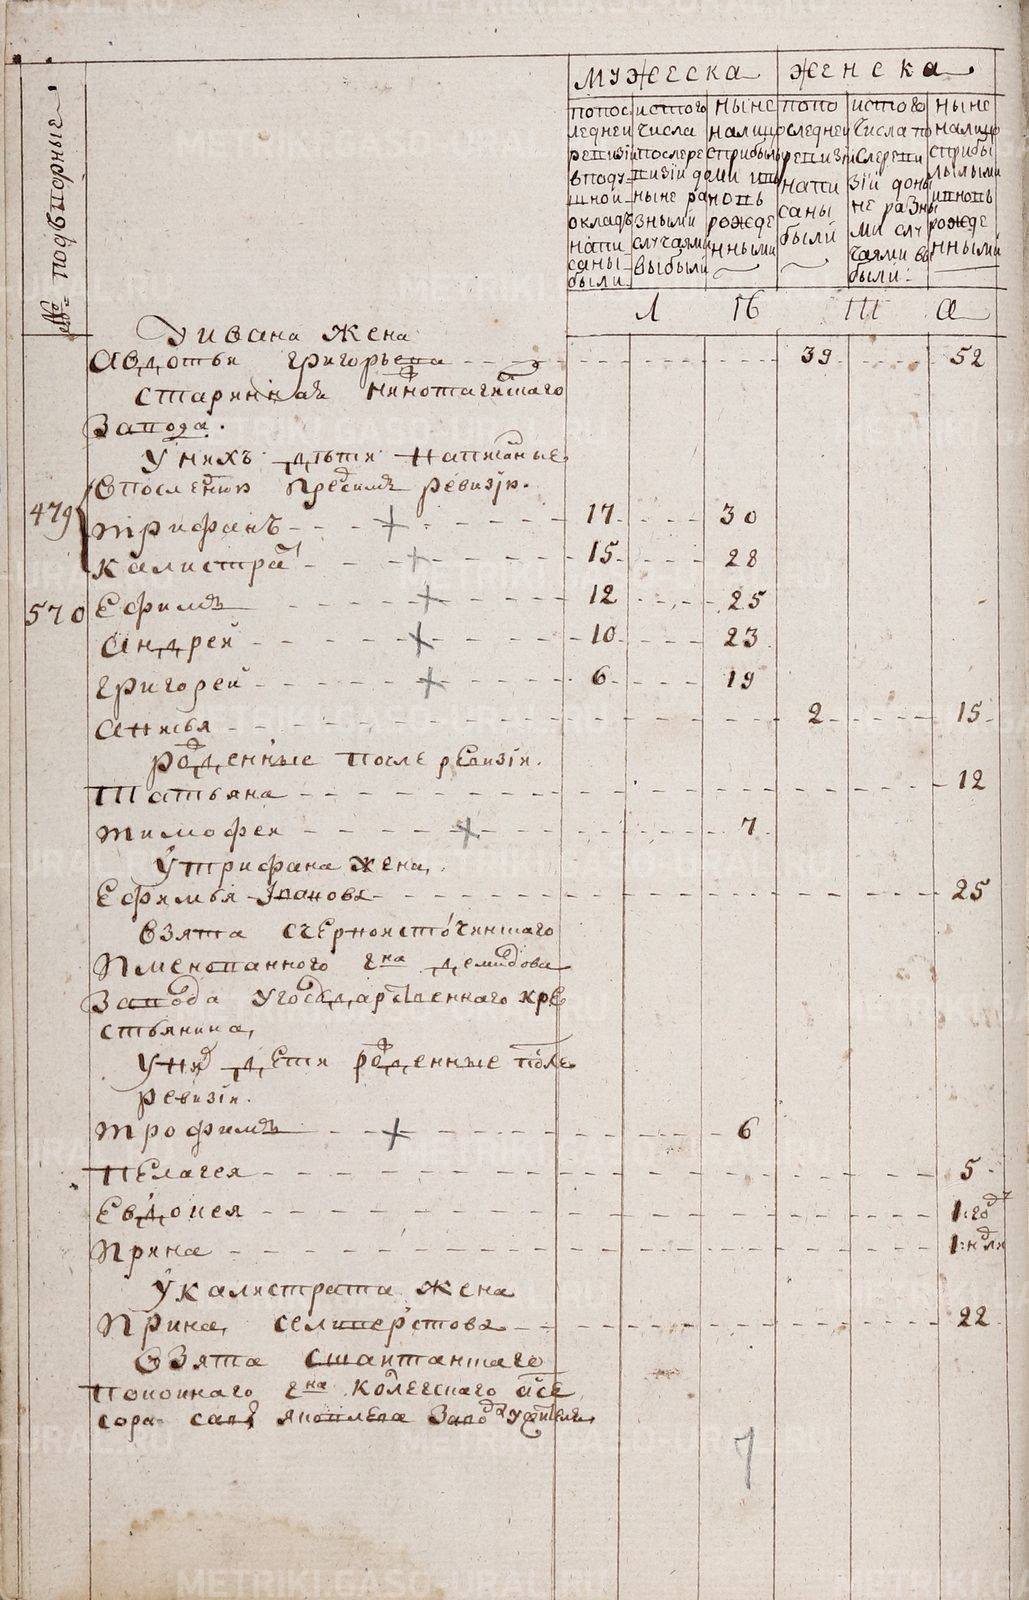 МУЖЕСКА ЖЕНСКА
№ подворные
попоследней ревизии в подушной окладъ написаны были
истого числа после ревизии до ныне разными случаями выбыли
ныне налицо сприбылыми и вновь рожденными
попоследней ревизии написаны были
истого числа после ревизіи доныне разными случаями выбыли
ныне налицо сприбылыми и вновь рожденными
Л Ѣ Т а
У ивана жена
Авдотья григорьева 39 52
старинная нижнотагилскаго
Завода.
У нихъ дѣти написанные
в последнюю пред симъ ревизiю.
479 трифанъ 17 30
калистратъ 15 28
570 Ефимъ 12 25
андрей 10 23
григорей 6 19
анисья 2 15
рожденные после ревизiи.
Татьяна 12
тимофеи 7
у трифана жена
Ефимья Iванова 25
взята счерноисточинскаго
имянованного гна демидова
Завода у государственнаго кре
стьянина,
У них дети рожденные после
ревизiи.
трофимъ 6
пелагея 5
Евдокея 1: год
Ирина 1: недля
У калистрата жена
Ирина селиверстова 22
Взята сшайтанскаго
покойнаго гна колежскаго асе
сора савы яковлева завода у жителя
7
METRIKI.GASO-URAL.RU